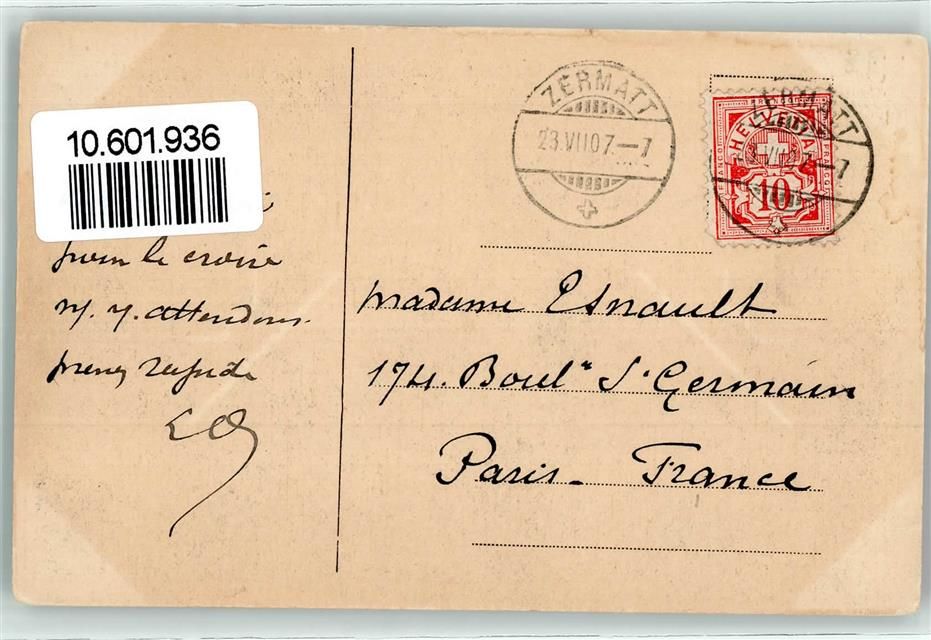 10.601.936
pour le croire
n. y. attendons.
prenez rapide
ZERMATT
23.VII.07.–7
ZERMATT
VII.07–7
FRANCO
HELVETIA
10
Madame Esnault
174. Boulᵈ S.ᵗ Germain
Paris - France